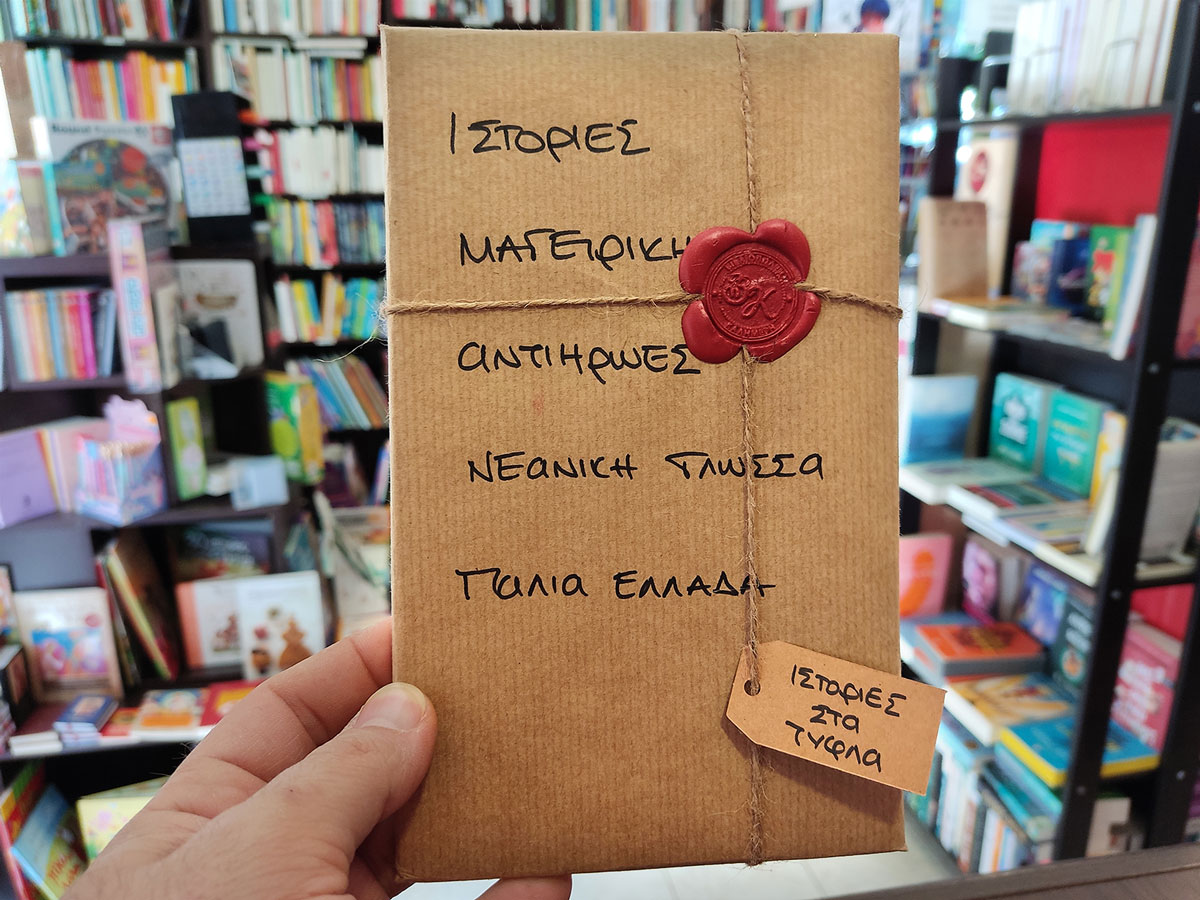 ΙΣΤΟΡΙΕΣ
ΜΑΓΕΙΡΙΚΗ
ΑΝΤΙΗΡΩΕΣ
ΝΕΑΝΙΚΗ ΓΛΩΣΣΑ
ΠΑΛΙΑ ΕΛΛΑΔΑ
ΙΣΤΟΡΙΕΣ
ΣΤΑ
ΤΥΦΛΑ